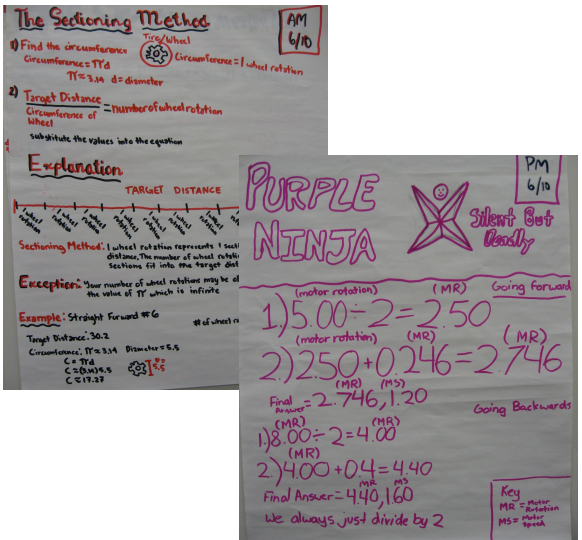 The Sectioning Method
AM
6/10
1) Find the circumference
Circumference = πd
π = 3.14 d = diameter
Tire/Wheel
Circumference = 1 wheel rotation
2) Target Distance
Circumference of
Wheel
= number of wheel rotation
substitute the values into the equation
Explanation
TARGET DISTANCE
1 wheel rotation
1 wheel rotation
1 wheel rotation
1 wheel rotation
1 wheel rotation
1 wheel rotation
1 wheel rotation
Sectioning Method: 1 wheel rotation represents 1 secti
distance. The number of wheel rotatio
sections fit into the target dist
Exception: Your number of wheel rotations may be o
the value of π which is infinite
Example: Straight Forward #6
# of wheel r
Target Distance: 30.2
Circumference: π = 3.14 Diameter = 5.5
C = πd
C = (3.14) 5.5
C = 17.27
D=
5.5
PURPLE
NINJA
PM
6/10
Silent But
Deadly
Going forward
(motor rotation) (MR)
1.) 5.00 ÷ 2 = 2.50
(motor rotation) (MR) (MR)
2.) 2.50 + 0.246 = 2.746
(MR) (MS)
Final
Answer = 2.746, 1.20
Going Backwards
(MR) (MR)
1.) 8.00 ÷ 2 = 4.00
(MR)
2.) 4.00 + 0.4 = 4.40
MR MS
Final Answer = 4.40, 1.60
We always just divide by 2
Key
MR = Motor
Rotation
MS = Motor
Speed